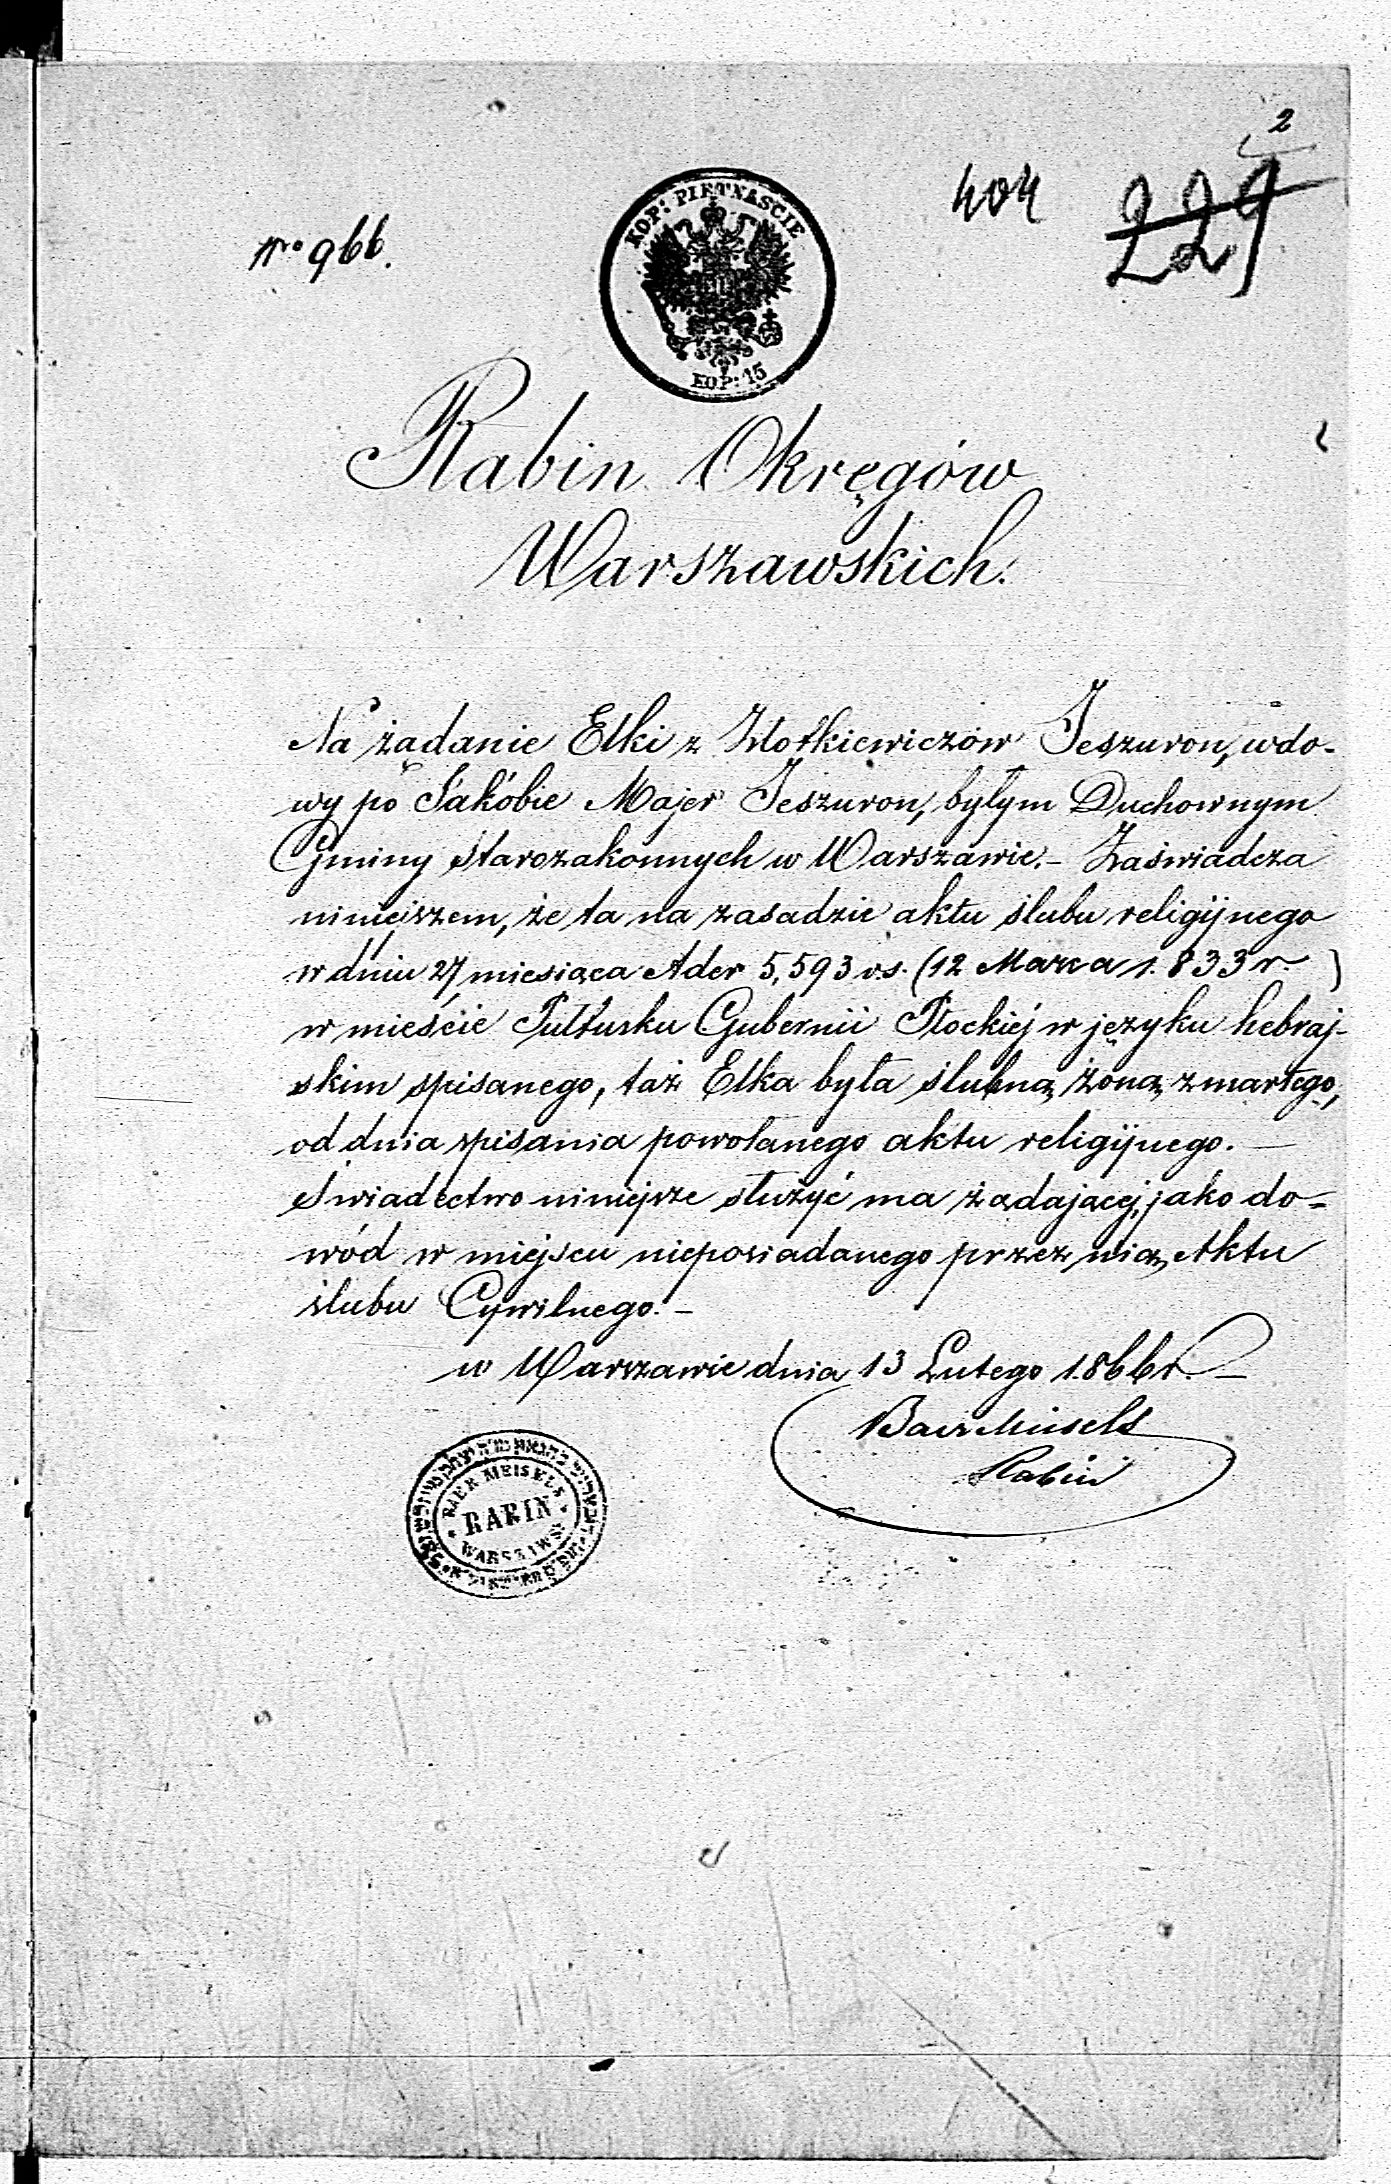 2
404 229
No 966.
KOP: PIĘTNAŚCIE
KOP: 15
Rabin Okręgów
Warszawskich.
Na żądanie Elki z Złotkiewiczów Jeszuron, wdo-
wy po Jakóbie Majer Jeszuron, byłym Duchownym
Gminy Starozakonnych w Warszawie. – Zaświadcza
niniejszem, że ta na zasadzie aktu ślubu religijnego
w dniu 27 miesiąca Ader 5,593 v.s. (12 Marca 1.833 r. )
w mieście Pułtusku Gubernii Płockiej w języku hebraj-
skim spisanego, taż Elka była ślubną żoną zmarłego,
od dnia spisania powołanego aktu religijnego. –
Świadectwo niniejsze służyć ma żądającej, jako do-
wód w miejscu nieposiadanego przez nią Aktu
ślubu Cywilnego. –
w Warszawie dnia 13 Lutego 1.866 r. –
Baer Meisels
Rabin
BAER MEISELS
RABIN
WARSZAWS.